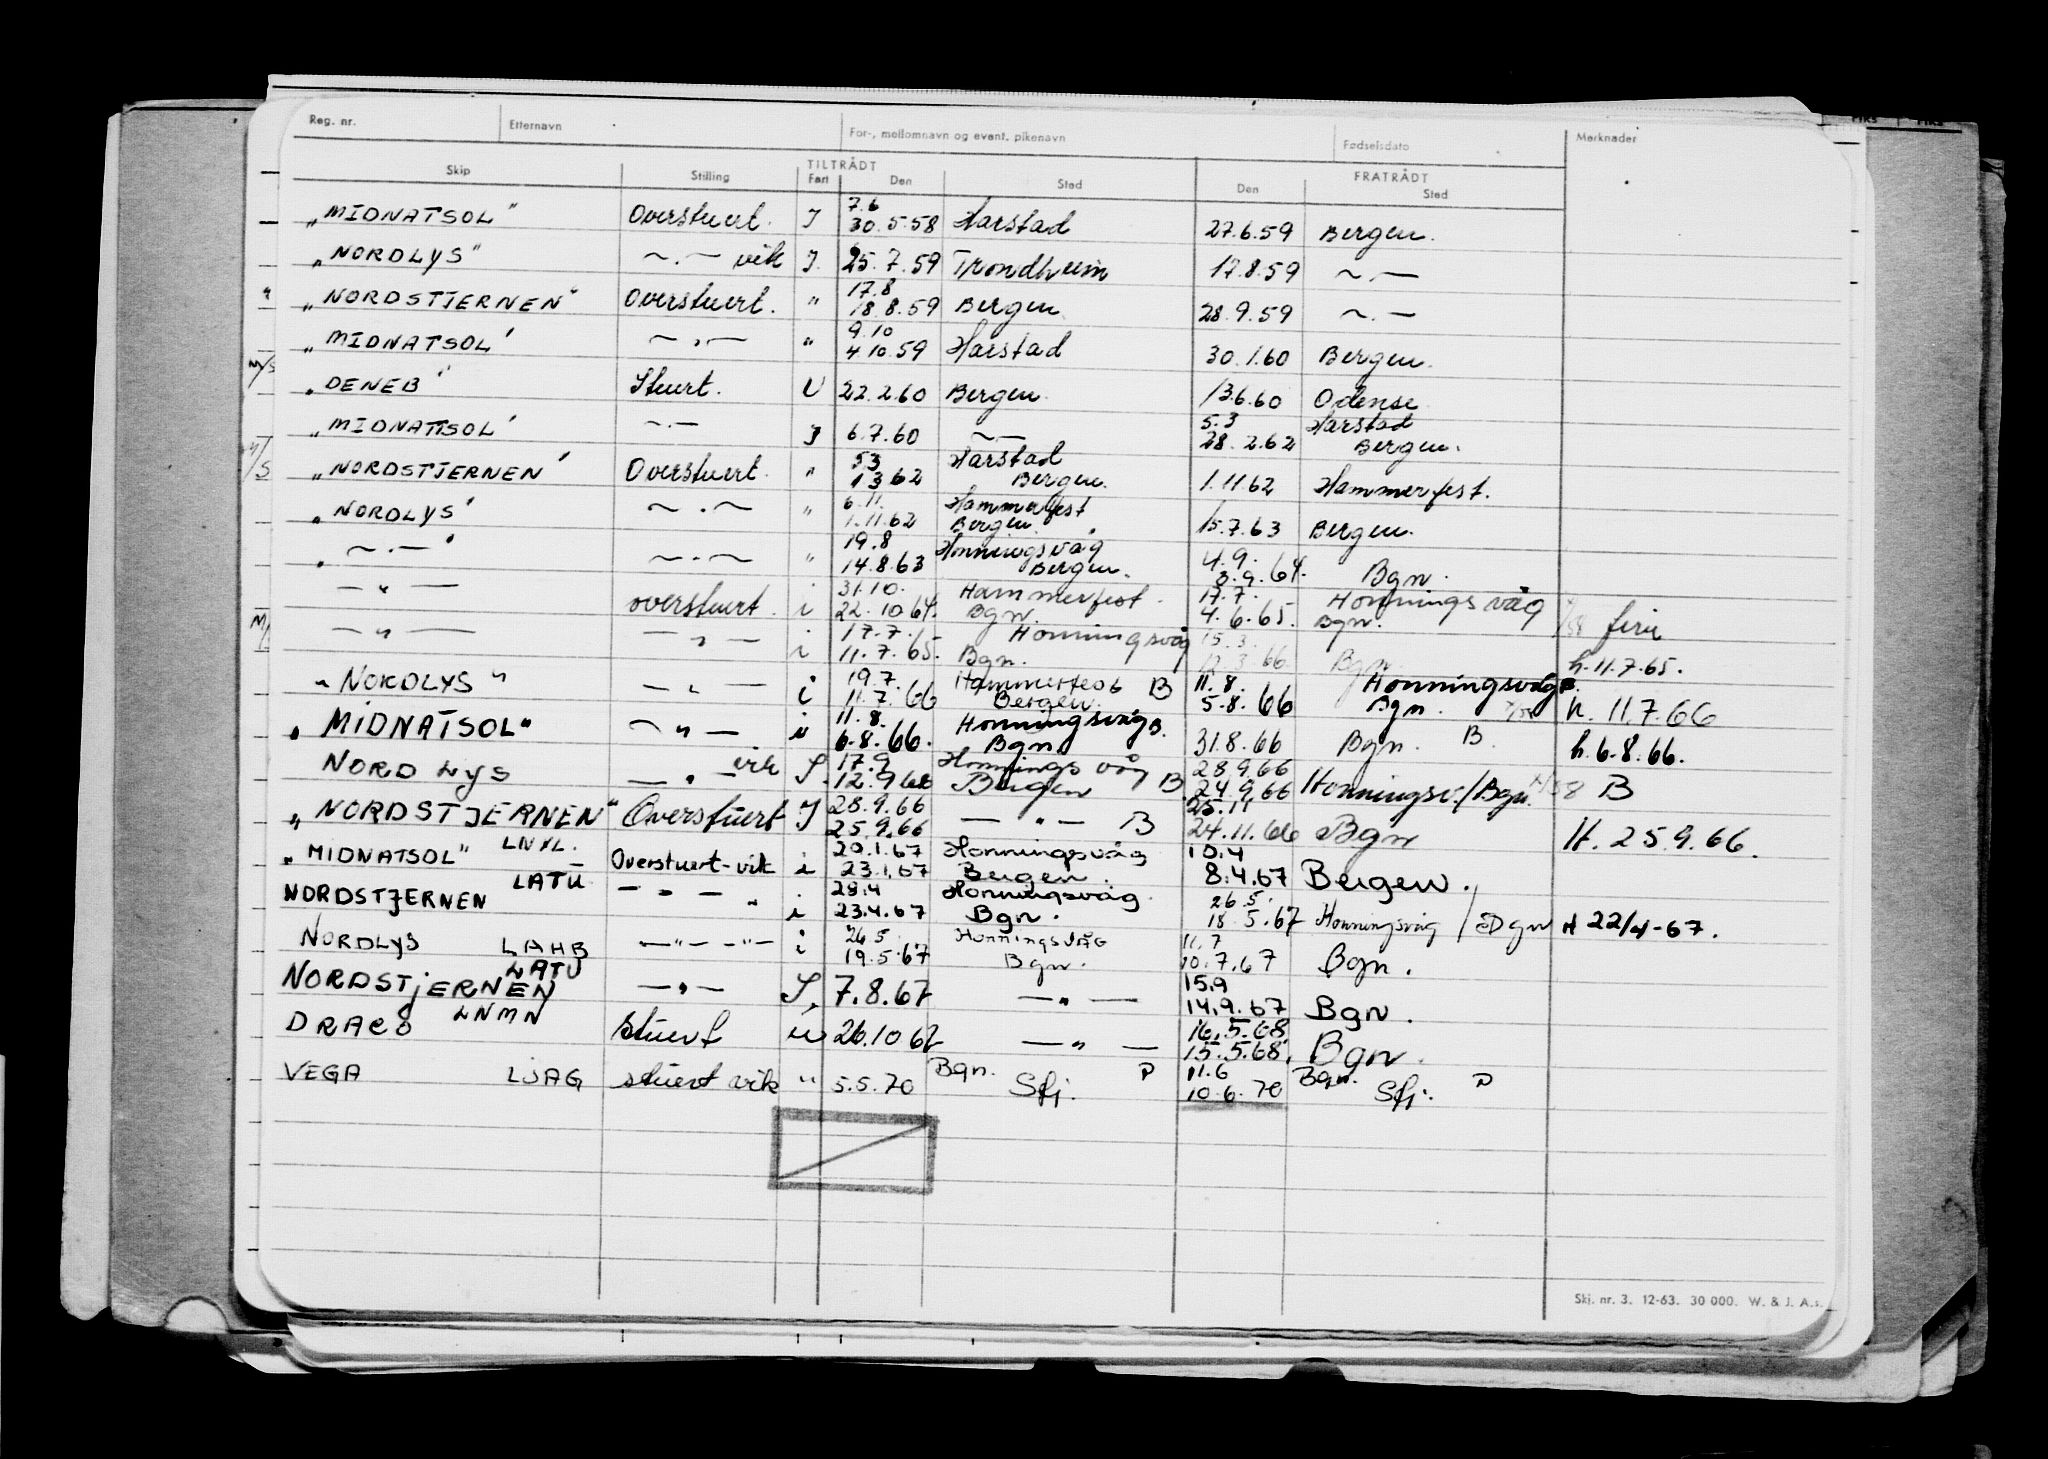 Reg. nr. Etternavn For-, mellomnavn og event. pikenavn Fødselsdato Merknader
TILTRÅDT FRATRÅDT
Skip Stilling Fart Den Sted Den Sted
7.6
„MIDNATSOL" Overstuert. I 30.5.58 Harstad 27.6.59 Bergen.
„NORDLYS" ~.— vik I. 25.7.59 Trondheim 17.8.59 ~.—
17.8
„NORDSTJERNEN" Overstuert. " 18.8.59 Bergen 28.9.59 ~.—
9.10
„MIDNATSOL' ~.— " 4.10.59 Harstad 30.1.60 Bergen.
M/S „DENEB' Stuert. U 22.2.60 Bergen 13.6.60 Odense
5.3 Harstad
„MIDNATTSOL' ~.— I 6.7.60 ~— 28.2.62 Bergen.
5.3 Harstad
„NORDSTJERNEN' Overstuert. " 1.3.62 Bergen. 1.11.62 Hammerfest.
6.11. Hammerfest
„NORDLYS' ~.~ " 1.11.62 Bergen 15.7.63 Bergen.
19.8 Honningsvåg 4.9.
„~.—' ~.~ " 14.8.63 Bergen. 3.9.64. Bgn.
31.10. Hammerfest. 17.7. Honningsvåg
—"— overstuert. i 22.10.64. Bgn. 4.6.65. Bgn. ferie
17.7. Honningsvåg 15.3.
—"— —"— i 11.7.65. Bgn. 12.3.66 Bgn. h. 11.7.65.
19.7. Hammerfest B 11.8. Honningsvåg B.
"NORDLYS" —"— i 11.7.66 Bergen. 5.8.66 Bgn. h. 11.7.66
11.8. Honningsvåg B.
„MIDNATSOL" ~"— i 6.8.66. Bgn. 31.8.66 Bgn. B. h. 6.8.66.
vik 17.9 Honningsvåg 28.9.66
NORDLYS —"— I. 12.9.66 Bergen B 24.9.66 Honningsv./Bgn. B
28.9.66 25.11
„NORDSTJERNEN" Overstuert I 25.9.66 —"— B 24.11.66 Bgn H. 25.9.66.
LNXL. 20.1.67 Honningsvåg 10.4
„MIDNATSOL" Overstuert-vik i 23.1.67 Bergen. 8.4.67 Bergen.
LATU 28.4 Honningsvåg. 26.5.
NORDSTJERNEN —"— " i 23.4.67 Bgn. 18.5.67 Honningsvåg / Bgn H 22/4-67.
26.5 Honningsvåg 11.7
NORDLYS LAHB —"— —"— i 19.5.67 Bgn. 10.7.67 Bgn.
LATU 15.9
NORDSTjERNEN —"— I. 7.8.67 —"— 14.9.67 Bgn.
LNMN 16.5.68
DRACO stuert u 26.10.67 —"— 15.5.68. Bgn.
Bgn. P 11.6 Bgn. P
VEGA LJAG stuert vik " 5.5.70 Sfj. 10.6.70 Sfj.
Skj. nr. 3. 12-63. 30 000. W. & J. A.s.